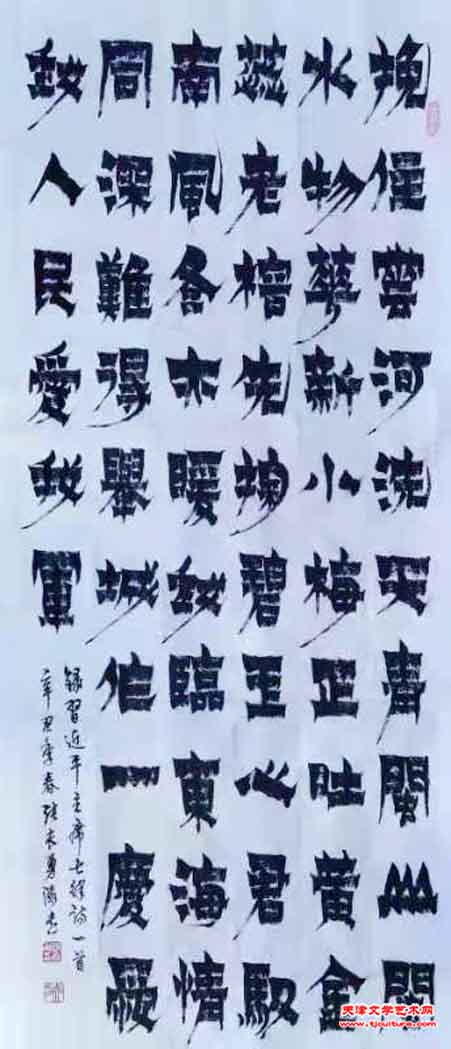 挽雲河洗天青閩山閩
水物華新小梅正吐黄金
蕊老榕先掬碧玉心君馭
南風冬亦暖我臨東海情
同深難得舉城作一慶愛
我人民愛我軍
錄習近平主席七律詩一首
辛丑季春
天津文学艺术网
www.tjculture.com